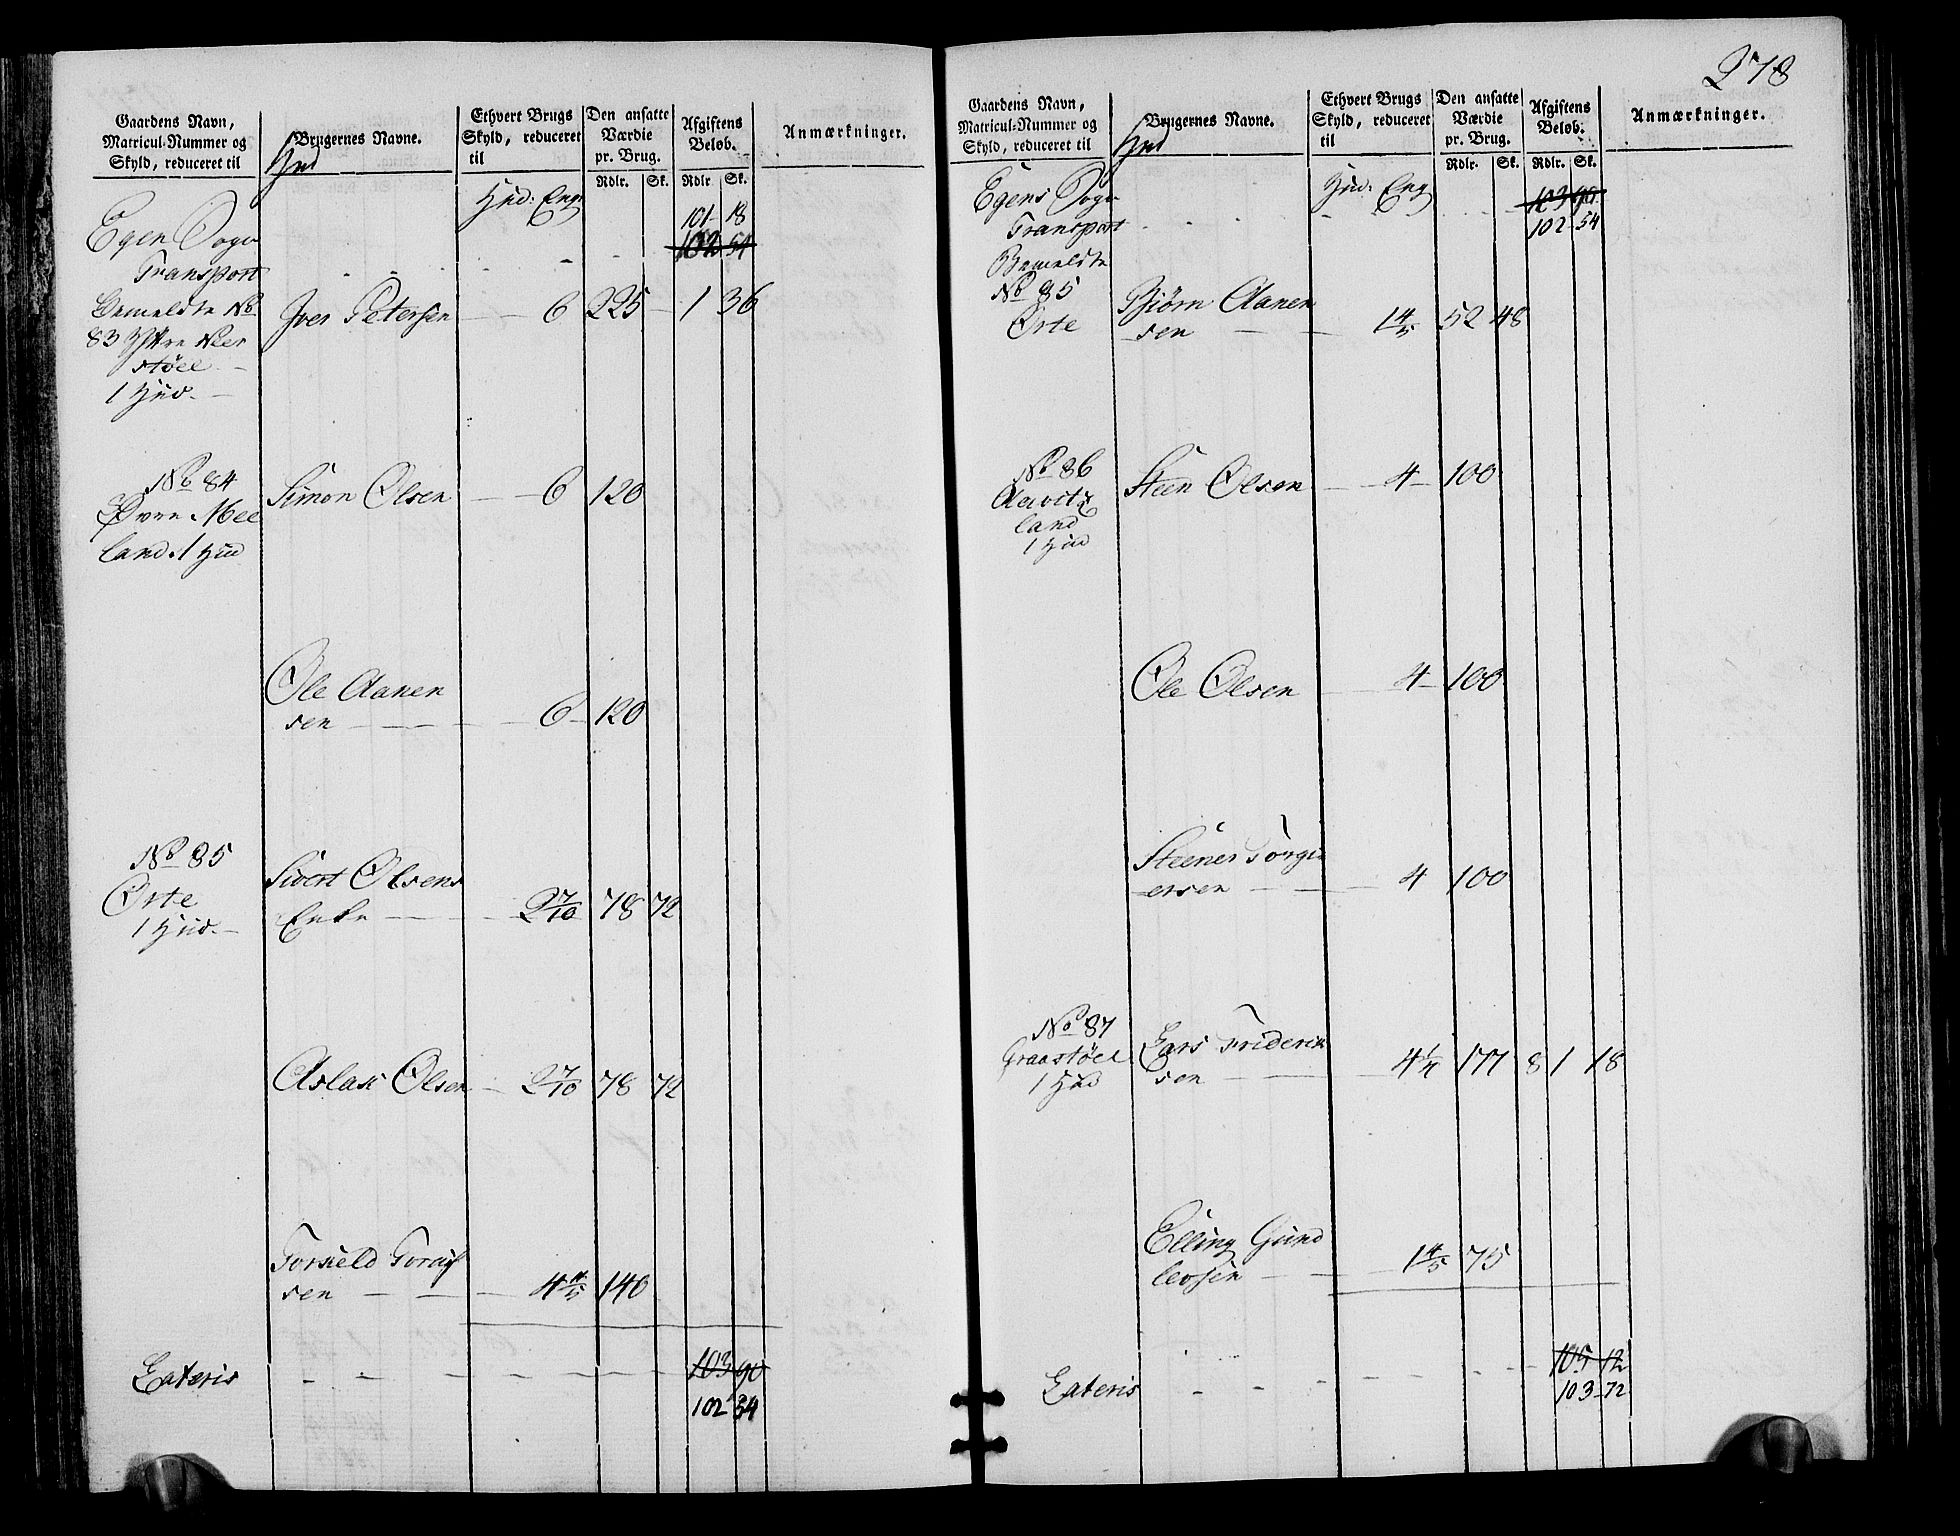 Gaardens Navn, Matricul-Nummer og Skyld, reduceret til
Hud
Brugernes Navne.
Ethvert Brugs Skyld, reduceret til
Den ansatte Værdie pr. Brug.
Rdlr. Sk.
Afgiftens Beløb.
Rdlr Sk.
Anmærkninger.
Hud: Eng
Egen Sogn
Transport
101 18
102 54
Bemeldte No
83 Yttre Nier
støel
1 Hud.
Iver Petersen 6 225 1 36
No 84
Øvre Mee
land. 1 Hud
Simon Olsen 6 120
Ole Aanen
sen 6 120
No 85
Ørte
1 Hud.
Sivert Olsens
Enke 2 7/10 78 72
Aslak Olsen 2 7/10 78 72
Torkield
sen 4 4/5 140
Lateris 103 90
102 54
278
Gaardens Navn, Matricul-Nummer og Skyld, reduceret til
Hud
Brugernes Navne.
Ethvert Brugs Skyld, reduceret til
Den ansatte Værdie pr. Brug.
Rdlr. Sk.
Afgiftens Beløb.
Rdlr. Sk.
Anmærkninger.
Hud: Eng
Egens Sogn
Transport
103 90
102 54
Bemeldte
No 85
Ørte
Bjørn Aanen
sen 1 4/5 52 48
No 86
land
1 Hud
Steen Olsen 4 100
Ole Olsen 4 100
Steener Torgi
ersen 4 100
No 87
Graastøel
1 Hud
Lars Friderik
sen 4 1/4 177 8 1 18
Elling Gund
levsen 1 4/5 75
Lateris 105 12
103 72